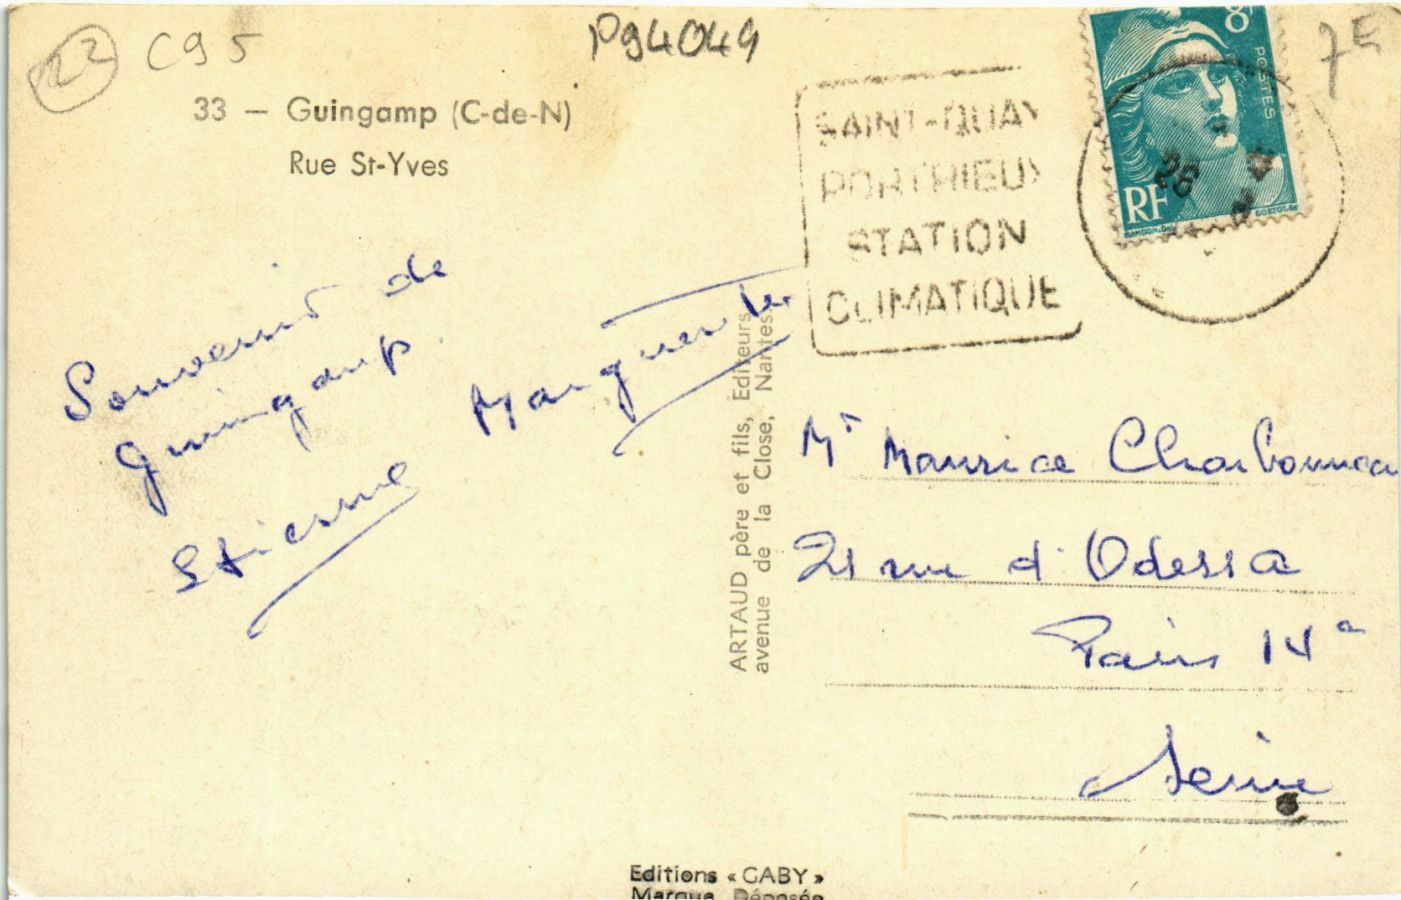 22
C95
P94049
7E
33 — Guingamp (C-de-N)
Rue St-Yves
SAINT-QUAY
PORTRIEUX
STATION
CLIMATIQUE
8
POSTES
RF
GANDON
26
Souvenir de
Guingamp.
Marguerite
Etienne
ARTAUD père et fils, Editeurs,
avenue de la Close, Nantes.
Mr Maurice Charbonneau
21 rue d'Odessa
Paris 14e
Seine
Editions « GABY »
Marque Déposée